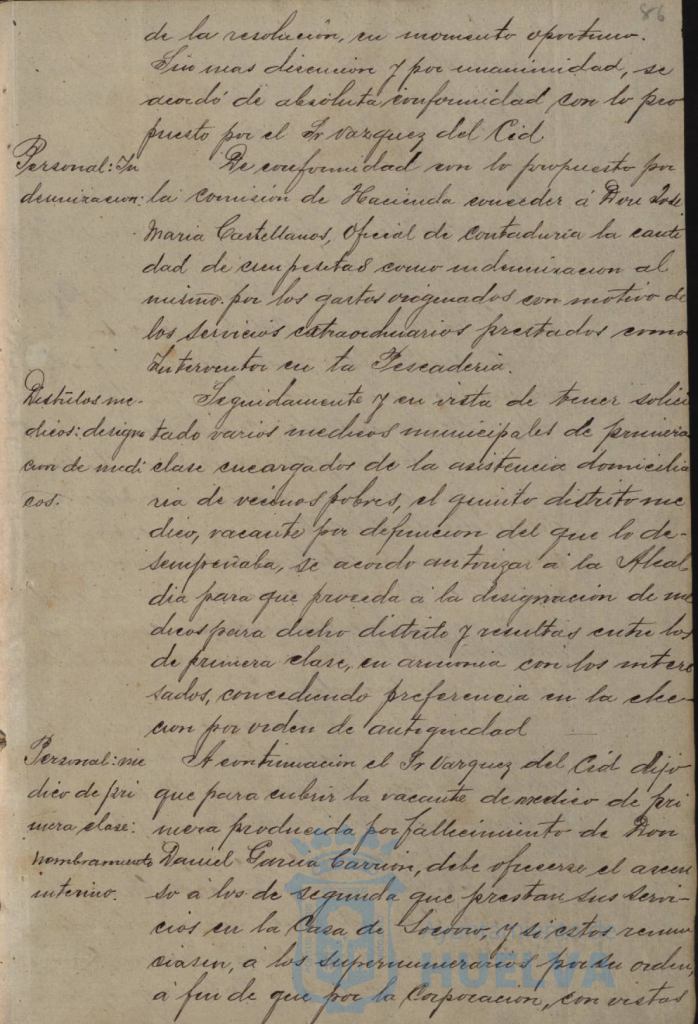 86
de la resolución, en momento oportuno.
Sin mas discusion y por unanimidad, se
acordó de absoluta conformidad con lo pro
puesto por el Sr Vazquez del Cid
Personal: In
demnizacion:
De conformidad con lo propuesto por
la comisión de Hacienda conceder á Don José
Maria Castellanos, Oficial de contaduría la canti
dad de cien pesetas como indemnizacion al
mismo por los gastos originados con motivo de
los servicios extraordinarios prestados como
Interventor en la Pescaderia.
Distritos me-
dicos: designa
cion de medi
cos.
Seguidamente y en vista de tener solici
tado varios medicos municipales de primera
clase encargados de la asistencia domicilia
ria de vecinos pobres, el quinto distrito me
dico, vacante por defuncion del que lo de-
sempeñaba, se acordo autorizar á la Alcal
dia para que proceda á la designacion de me
dicos para dicho distrito y resultas entre los
de primera clase, en armonia con los intere
sados, concediendo preferencia en la elec-
cion por orden de antiguedad
Personal: me
dico de pri
mera clase:
nombramiento
interino.
A continuación el Sr Vazquez del Cid dijo
que para cubrir la vacante de medico de pri
mera producida por fallecimiento de Don
Daniel Garcia Carrion, debe ofrecerse el ascen
so á los de segunda que prestan sus servi-
cios en la Casa de Socorro, y si estos renun
ciasen, á los supernumerarios por su orden,
á fin de que por la Corporacion, con vistas
HUELVA